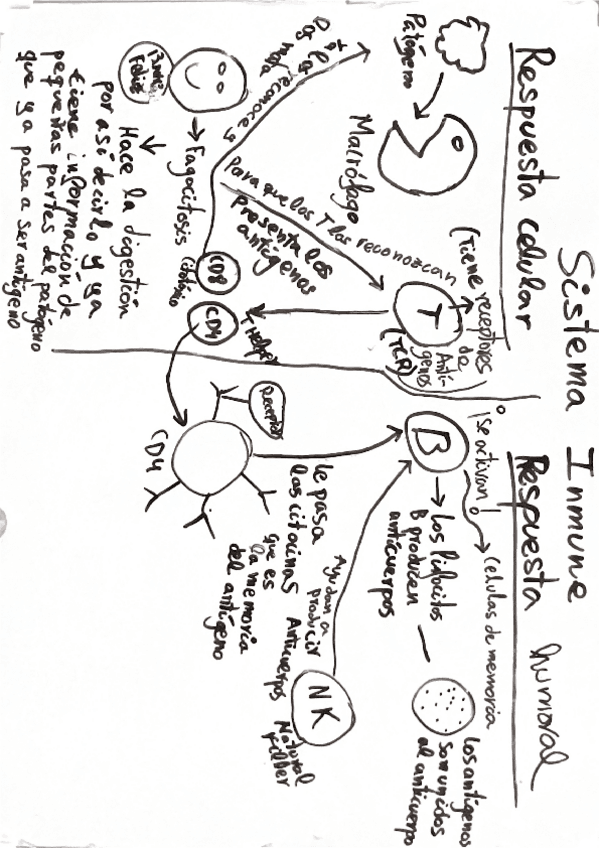 Sistema Inmune
Respuesta celular
Patógeno
Macrófago
(Tiene receptores
de
Antí-
genos
(TCR)
T
Para que los T las reconozcan
presenta los
antígenos
reconoce y
CD8
Citotóxico
CD4
T Helper
→ Fagocitosis
Hace la digestión
por así decirlo y ya
tiene información de
pequeñas partes del patógeno
que ya pasa a ser antígeno
Respuesta humoral
¡Se activan!
Células de memoria
B
Los linfocitos
B producen
anticuerpos
Los antígenos
son unidos
al anticuerpo
Receptor
CD4
le pasa
las citocinas
que es
la memoria
del antígeno
Ayudan a
producir
Anticuerpos
NK
Natural
Killer